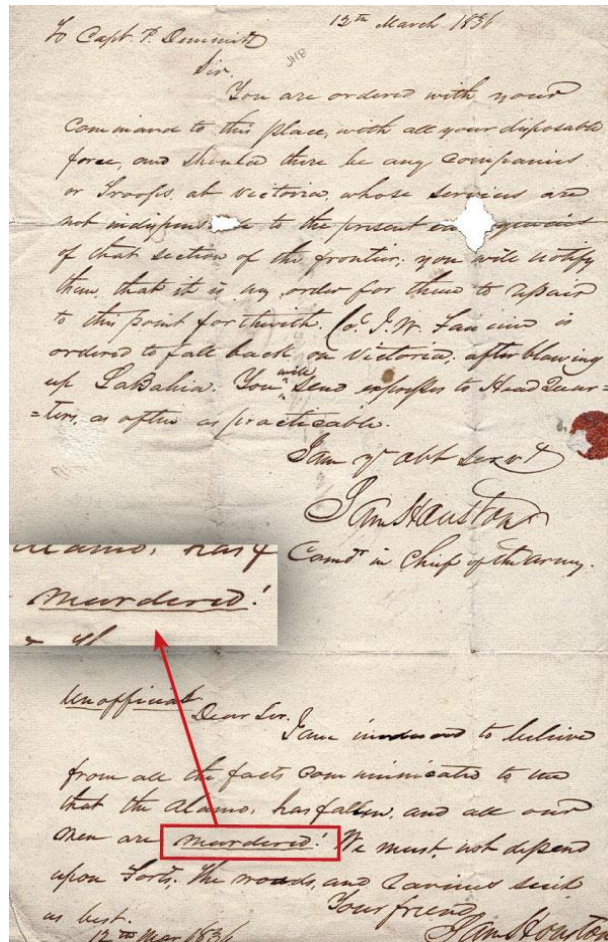 12th March 1836
To Capt. P. Demmitt
JHB
Sir.
You are ordered with your
Command to this place, with all your disposable
force, and should there be any Companies
or Troops, at Victoria, whose services are
not indispens to the present gencies
of that section of the frontier; you will notify
them, that it is my order for them to repair
to this point forthwith. Col. J. W. Fannin is
ordered to fall back on Victoria; after blowing
up LaBahia. You will send expresses to Head Quar-
=ters, as often as practicable.
I am yr obt Servt
Sam Houston
Comdr in Chief of the army.
Alamo, has f
murdered!
Unofficial
Dear Sir.
I am induced to believe
from all the facts communicated to me
that the Alamo, has fallen, and all our
men are murdered! We must, not depend
upon Forts; the roads, and ravines suit
us best.
Your friend
12th Mar 1836 Sam Houston